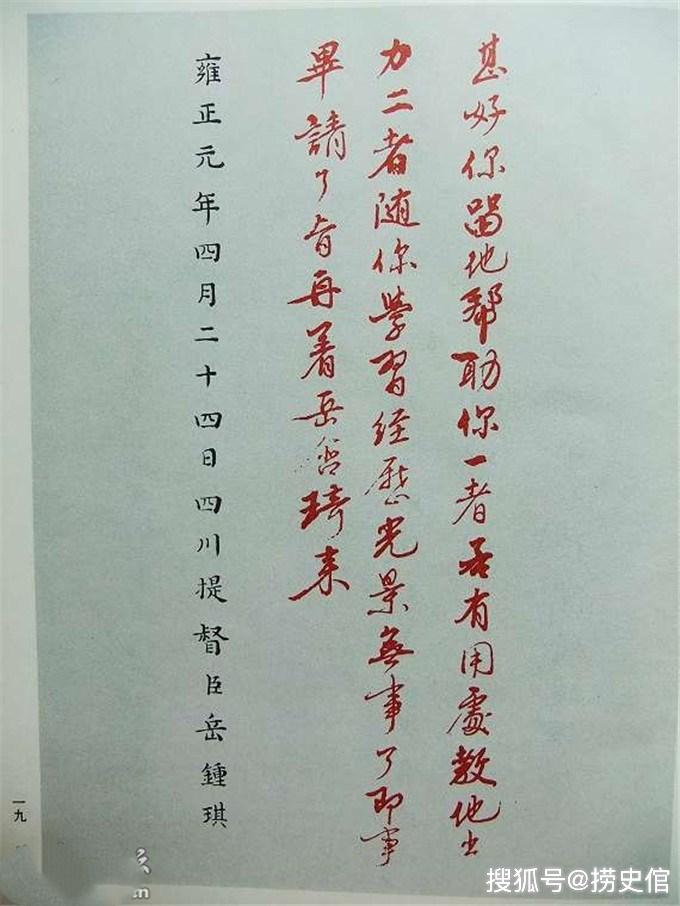 甚好你畱他帮助你一者若有用處教他出
力二者随你學習经歷光景無事了即事
畢請了旨再着岳含琦来
雍正元年四月二十四日四川提督臣岳鍾琪
一九
搜狐号@捞史馆